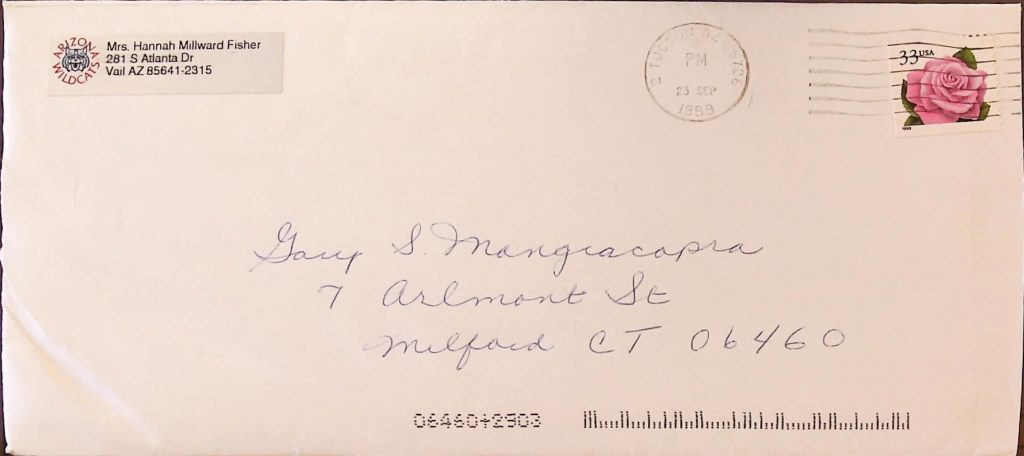 ARIZONA WILDCATS
Mrs. Hannah Millward Fisher
281 S Atlanta Dr
Vail AZ 85641-2315
TUCSON AZ 85726
PM
23 SEP
1999
33USA
1999
Gary S. Mangiacopra
7 Arlmont St
Milford CT 06460
06460+2903